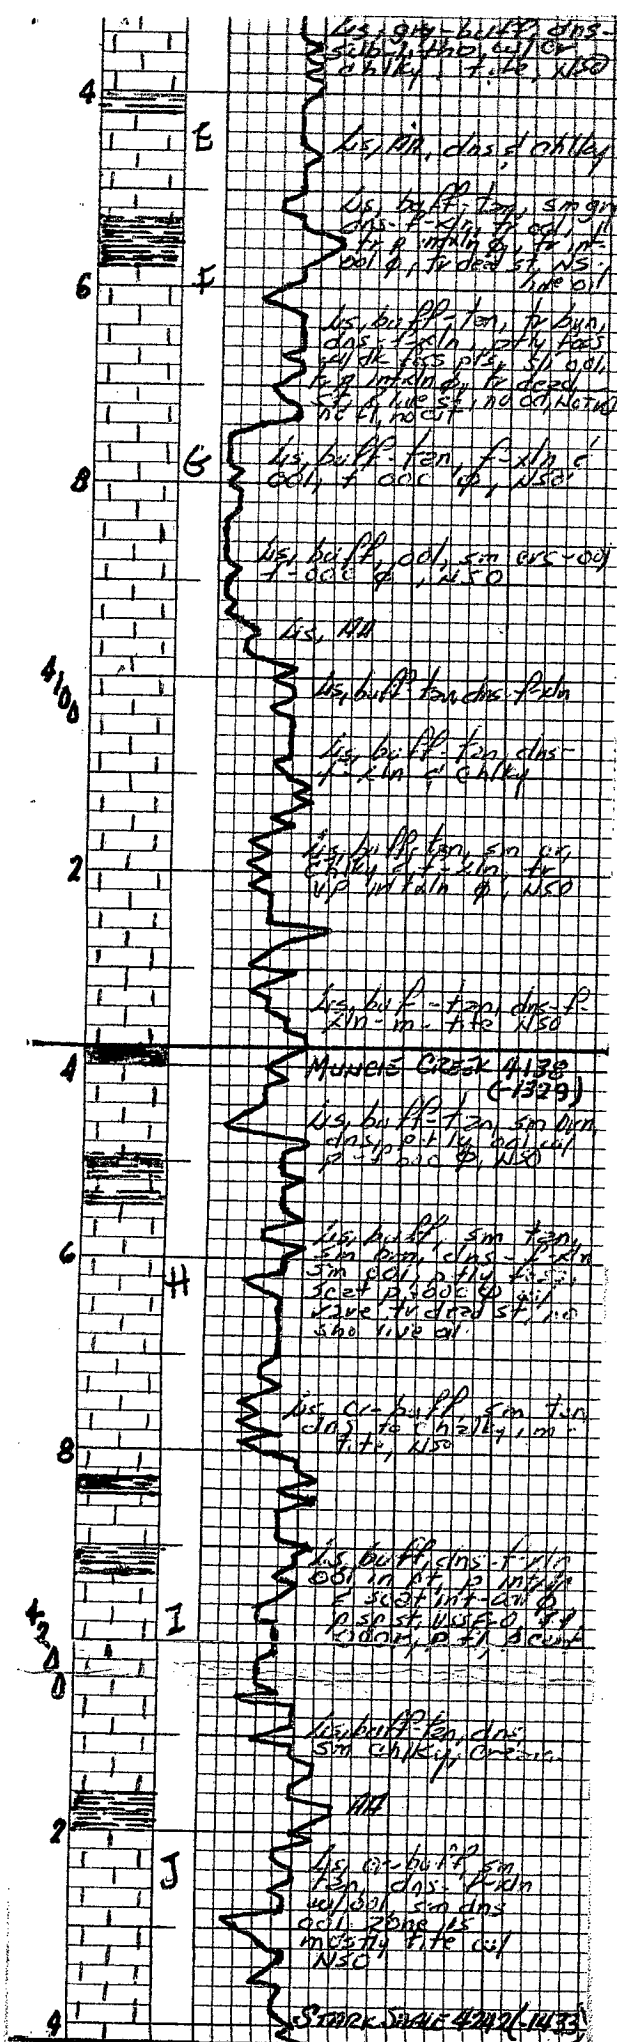 Ls, gry-buff, dns-
sub-litho, w/ cr
chlky, tite, NSO
4
E
Ls, AA, dns & chlky
Ls, buff-tan, sm gry
dns-f-xln, tr ool,
tr p intxln φ, tr int-
ool φ, tr dead st, NS
live oil
6
F
Ls, buff-tan, tr brn,
dns-f-xln, ptly foss
w/ dk foss pts, sli ool,
tr p intxln φ, tr dead
st, live st, no od,
no fl, no cut
G
Ls, buff-tan, f-xln &
8
ool, f ooc φ, NSO
Ls, buff, ool, sm crs-ool
f-ooc φ, NSO
Ls, AA
4100
Ls, buff-tan, dns-f-xln
Ls, buff-tan, dns-
f-xln & chlky
Ls, buff-tan, sm cr,
2
chlky & f-xln, tr
vp intxln φ, NSO
Ls, buff-tan, dns-f-
xln-m-tite NSO
4
MUNCIE CREEK 4138
(-1329)
Ls, buff-tan, sm brn,
dns, ptly ool w/
p-f ooc φ, NSO
Ls, buff, sm tan,
6
sm brn, dns-f-xln
H
sm ool, ptly foss,
scat p-ooc φ w/
rare tr dead st, no
sho live oil
Ls, cr-buff, sm tan,
dns to chalky, m-
8
tite, NSO
Ls, buff, dns-f-xln
ool in pt, p
& scat int-ool φ
I
p sp st, VSSFO
odor, p fl,
4200
Ls, buff-tan, dns,
sm chlky,
AA
2
J
Ls, cr-buff, sm
tan, dns-f-xln
w/ ool, sm dns
ool. zone is
mostly tite w/
NSO
4
STARK SHALE 4242 (-1433)